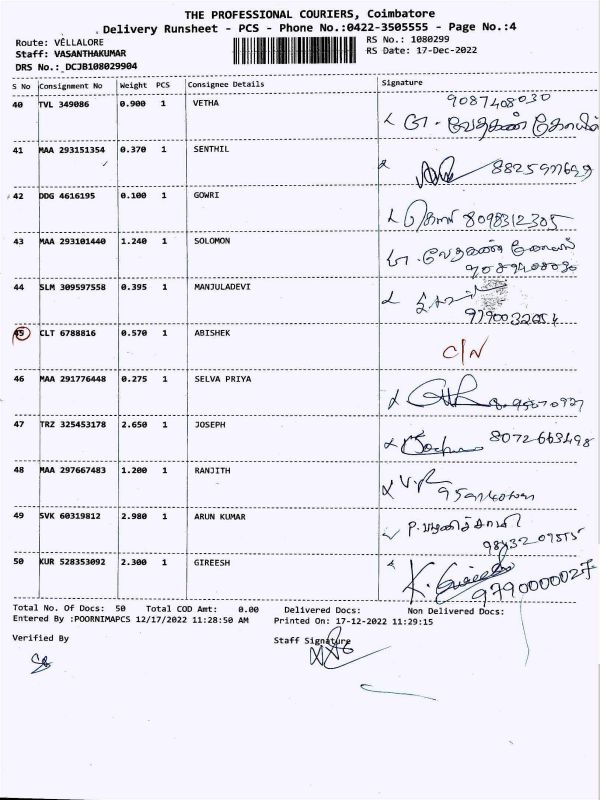 THE PROFESSIONAL COURIERS, Coimbatore
Delivery Runsheet - PCS - Phone No.:0422-3505555 - Page No.:4
Route: VELLALORE
RS No.: 1080299
Staff: VASANTHAKUMAR
RS Date: 17-Dec-2022
DRS No.: DCJB108029904
S No Consignment No Weight PCS Consignee Details Signature
40 TVL 349086 0.900 1 VETHA 9087408030
41 MAA 293151354 0.370 1 SENTHIL
42 DDG 4616195 0.100 1 GOWRI 8098312305
43 MAA 293101440 1.240 1 SOLOMON
44 SLM 309597558 0.395 1 MANJULADEVI
9790032054
45 CLT 6788816 0.570 1 ABISHEK
C/N
46 MAA 291776448 0.275 1 SELVA PRIYA
47 TRZ 325453178 2.650 1 JOSEPH 8072663498
48 MAA 297667483 1.200 1 RANJITH
49 SVK 60319812 2.980 1 ARUN KUMAR
50 KUR 528353092 2.300 1 GIREESH K. Gireesh
9790000027
Total No. Of Docs: 50 Total COD Amt: 0.00 Delivered Docs: Non Delivered Docs:
Entered By :POORNIMAPCS 12/17/2022 11:28:50 AM Printed On: 17-12-2022 11:29:15
Verified By Staff Signature